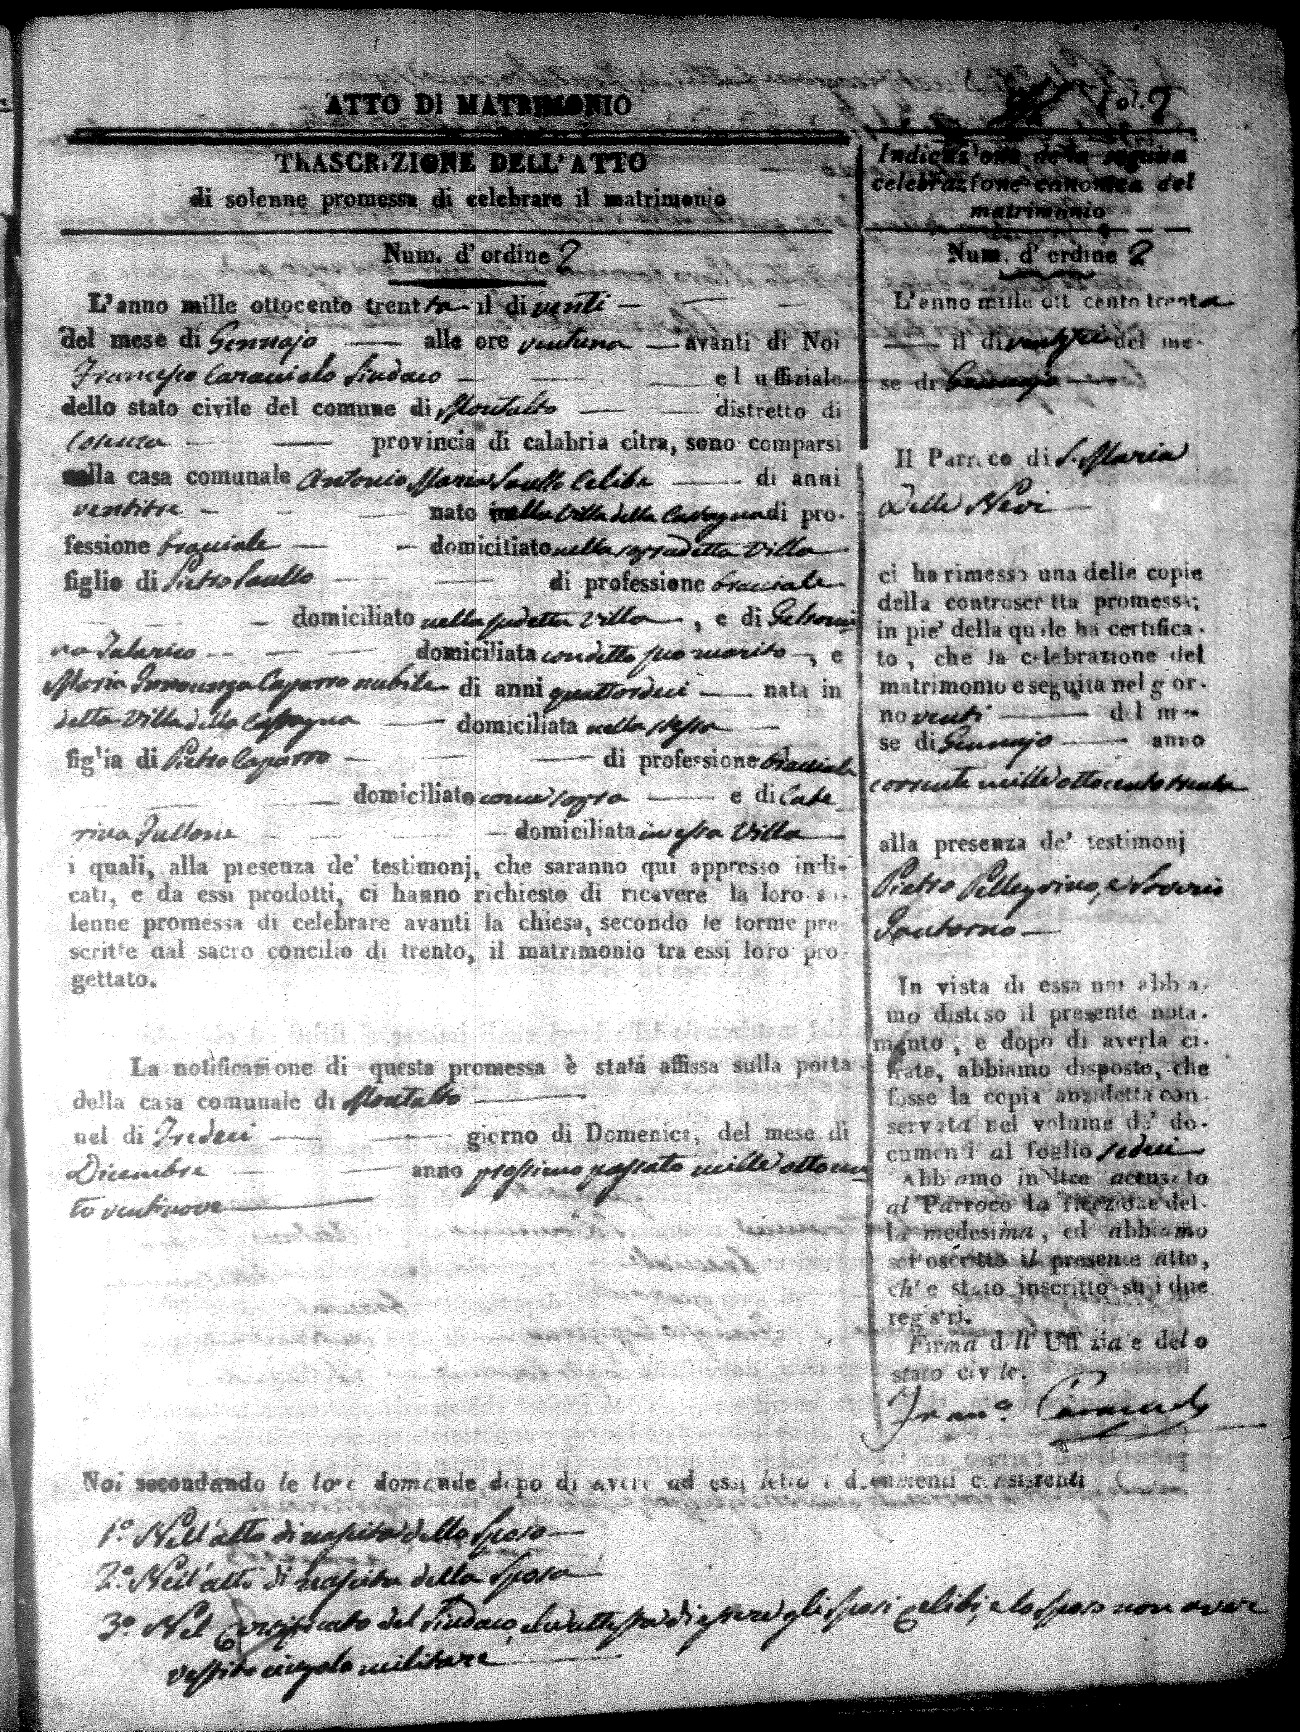 ATTO DI MATRIMONIO
TRASCRIZIONE DELL'ATTO
di solenne promessa di celebrare il matrimonio
Num. d'ordine 2
L'anno mille ottocento trenta il di venti
del mese di Gennajo alle ore ventuna avanti di Noi
Francesco Caracciolo Sindaco ed uffiziale
dello stato civile del comune di Montalto distretto di
Cosenza provincia di calabria citra, sono comparsi
nella casa comunale Antonio Maria Saullo Celibe di anni
ventitre nato nella Villa della Castagna di pro-
fessione bracciale domiciliato nella sopradetta Villa
figlio di Pietro Saullo di professione bracciale
domiciliato nella sudetta Villa, e di Gelsomi
na Talarico domiciliata con detto suo marito, e
Maria Innocenza Caparro nubile di anni quattordeci nata in
detta Villa della Castagna domiciliata nella stessa
figlia di Pietro Caparro di professione bracciale
domiciliato come sopra e di Cate
rina Tullone domiciliata in essa Villa
i quali, alla presenza de' testimonj, che saranno qui appresso indi-
cati, e da essi prodotti, ci hanno richiesto di ricevere la loro so-
lenne promessa di celebrare avanti la chiesa, secondo le forme pre-
scritte dal sacro concilio di trento, il matrimonio tra essi loro pro-
gettato.
La notificazione di questa promessa è stata affissa sulla porta
della casa comunale di Montalto
nel di Tredeci giorno di Domenica, del mese di
Dicembre anno prossimo passato mille ottocen
to ventinove
Fol. 2
Indicazione della seguita
celebrazione canonica del
matrimonio
Num. d'ordine 2
L'anno mille ott cento trenta
il di ventitre del me-
se di Gennajo
Il Parroco di S. Maria
Delle Nevi
ci ha rimesso una delle copie
della controscritta promessa;
in pie' della quale ha certifica-
to, che la celebrazione del
matrimonio e seguita nel gior-
no venti del me-
se di Gennajo anno
corrente mille ottocento trenta
alla presenza de' testimonj
Pietro Pellegrino, e Saverio
Santorno
In vista di essa noi abbia-
mo disteso il presente nota-
mento, e dopo di averla ci-
frata, abbiamo disposto, che
fosse la copia anzidetta con-
servata nel volume de' do-
cumenti al foglio sedeci
Abbiamo inoltre accusato
al Parroco la ricezione del-
la medesima, ed abbiamo
sottoscritto il presente atto,
ch' e stato inscritto su i due
registri.
Firma dell' Uffiziale dello
stato civile.
Fran.º Caracciolo
Noi secondando le loro domande dopo di avere ad essi letto i documenti consistenti
1.º Nell'atto di nascita dello Sposo
2.º Nell'atto di nascita della Sposa
3.º Nel Certificato del Sindaco, che attesta di essere gli sposi celibi, e lo sposo non avere
vestito cingolo militare